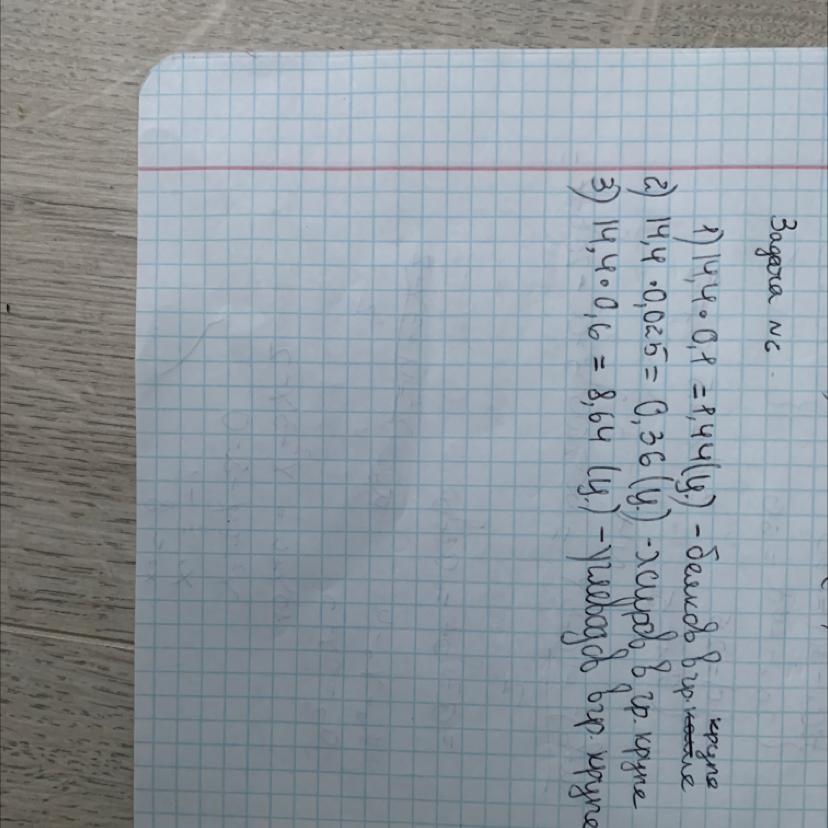 Задача №6.
1) 14,4 • 0,1 = 1,44 (ц.) - белков в гр. крупе
2) 14,4 • 0,025 = 0,36 (ц.) - жиров в гр. крупе
3) 14,4 • 0,6 = 8,64 (ц.) - углеводов в гр. крупе